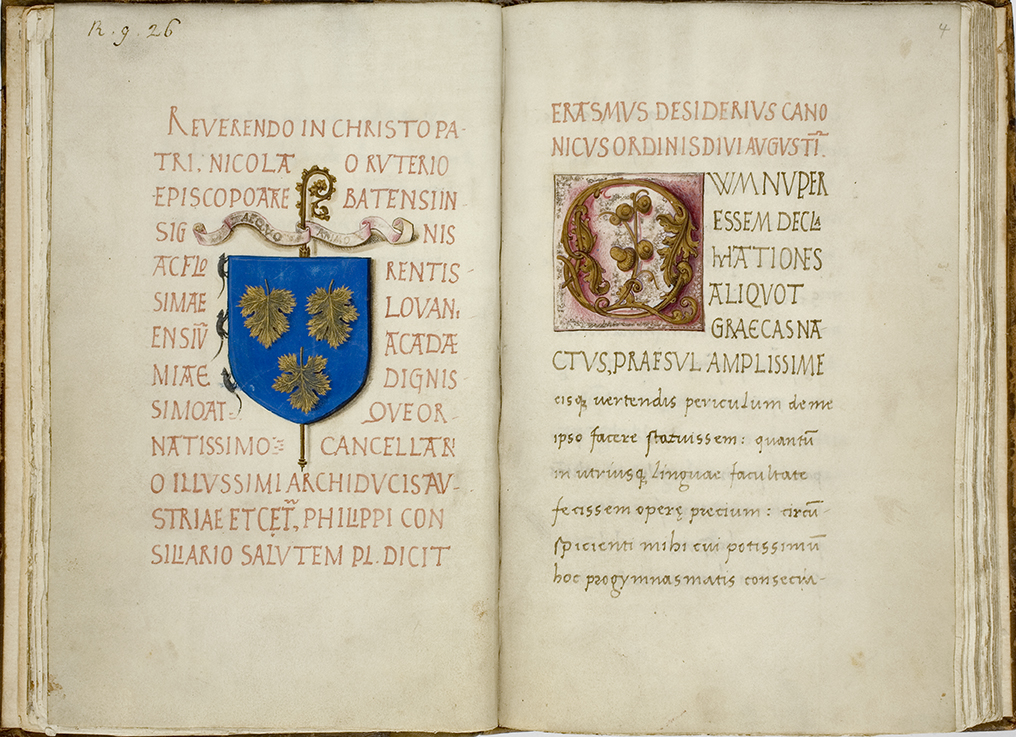 R. g. 26
REVERENDO IN CHRISTO PA-
TRI, NICOLA O RVTERIO
EPISCOPO ATRE BATENSI IN-
SIG NIS
AEQVO ANIMO
AC FLO RENTIS-
SIMAE LOVANI
ENSIṼ ACADÆ
MIAE DIGNIS-
SIMO AT- QVE OR-
NATISSIMO CANCELLARI
O ILLVSSIMI ARCHIDVCIS AV-
STRIAE ET CĘT, PHILIPPI CON
SILIARIO SALVTEM PL. DICIT
4
ERASMVS DESIDERIVS CANO
NICVS ORDINIS DIVI AVGVSTI.
QVVM NVPER
ESSEM DECLA
MATIONES
ALIQVOT
GRAECAS NA
CTVS, PRAESVL AMPLISSIME
cisq; vertendis periculum de me
ipso facere statuissem: quantũ
in utriusq; linguae facultate
fecissem operę precium: circũ-
spicienti mihi cui potissimũ
hoc progymnasmatis consecra-